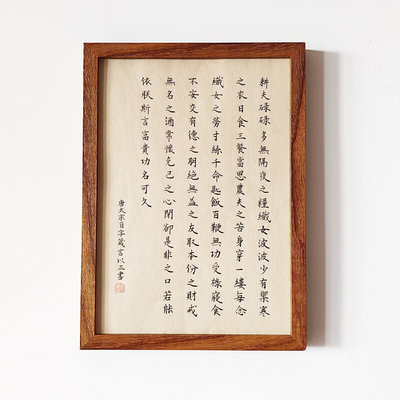 耕夫碌碌多無隔夜之糧織女波波少有禦寒
之衣日食三餐當思農夫之苦身穿一縷每念
織女之勞寸絲千命匙飯百鞭無功受祿寢食
不安交有德之朋絕無益之友取本份之財戒
無名之酒常懷克己之心閉卻是非之口若能
依朕斯言富貴功名可久
唐太宗百字箴言以上書